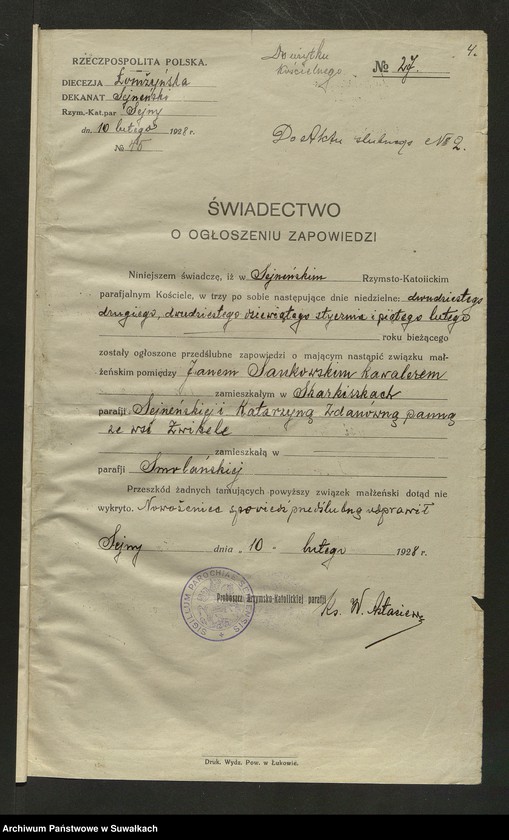 4.
Do użytku
kościelnego
№ 27.
RZECZPOSPOLITA POLSKA.
DIECEZJA Łomżyńska
DEKANAT Sejneński
Rzym.-Kat.par Sejny
dn. 10 lutego 1928 r.
№ 45
Do Aktu ślubnego № 2.
ŚWIADECTWO
O OGŁOSZENIU ZAPOWIEDZI
Niniejszem świadczę, iż w Sejneńskim Rzymsko-Katolickim
parafjalnym Kościele, w trzy po sobie następujące dnie niedzielne: dwudziestego
drugiego, dwudziestego dziewiątego stycznia i piątego lutego
roku bieżącego
zostały ogłoszone przedślubne zapowiedzi o mającym nastąpić związku mał-
żeńskim pomiędzy Janem Sankowskim kawalerem
zamieszkałym w Skarkiszkach
parafji Sejneńskiej i Katarzyną Zdanowną panną
ze wsi Żwikele
zamieszkałą w
parafji Smolańskiej
Przeszkód żadnych tamujących powyższy związek małżeński dotąd nie
wykryto. Nowożeniec spowiedź przedślubną odprawił
Sejny dnia 10 lutego 1928 r.
Proboszcz Rzymsko-Katolickiej parafji
Ks. W. Astasiewicz
SIGILLUM PAROCHIAE SEJNENSIS
Druk. Wydz. Pow. w Łukowie.
Archiwum Państwowe w Suwałkach